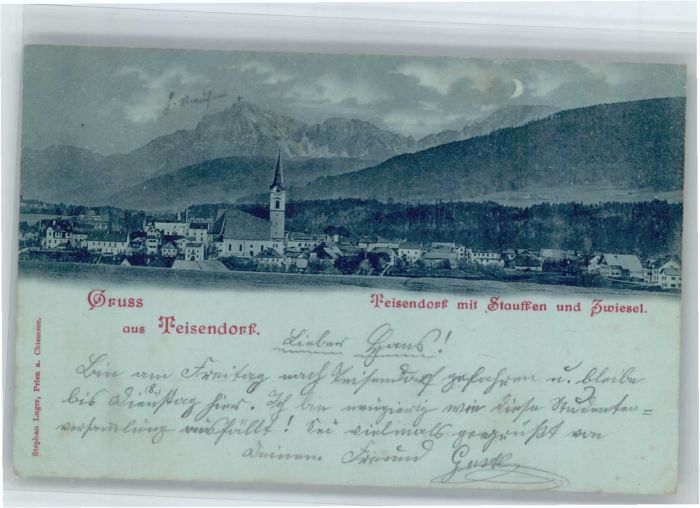 Gruss
aus Teisendorf.
Teisendorf mit Stauffen und Zwiesel.
Lieber Hans!
Bin am Freitag nach Teisendorf gefahren u. bleibe
bis Dienstag hier. Ich bin neugierig wie diese Studenten-
versammlung ausfällt! Sei vielmals gegrüßt von
Deinem Freund
Stephan Luger, Prien a. Chiemsee.